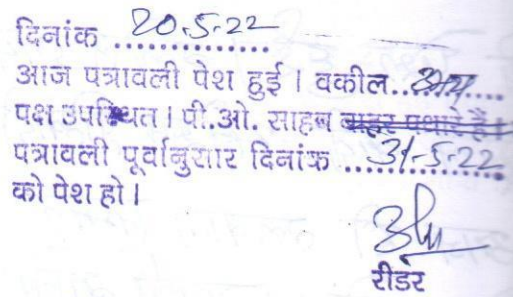 दिनांक 20.5.22
आज पत्रावली पेश हुई । वकील.. उभय
पक्ष उपस्थित । पी.ओ. साहब बाहर पधारे हैं ।
पत्रावली पूर्वानुसार दिनांक 31-5-22
को पेश हो ।
रीडर